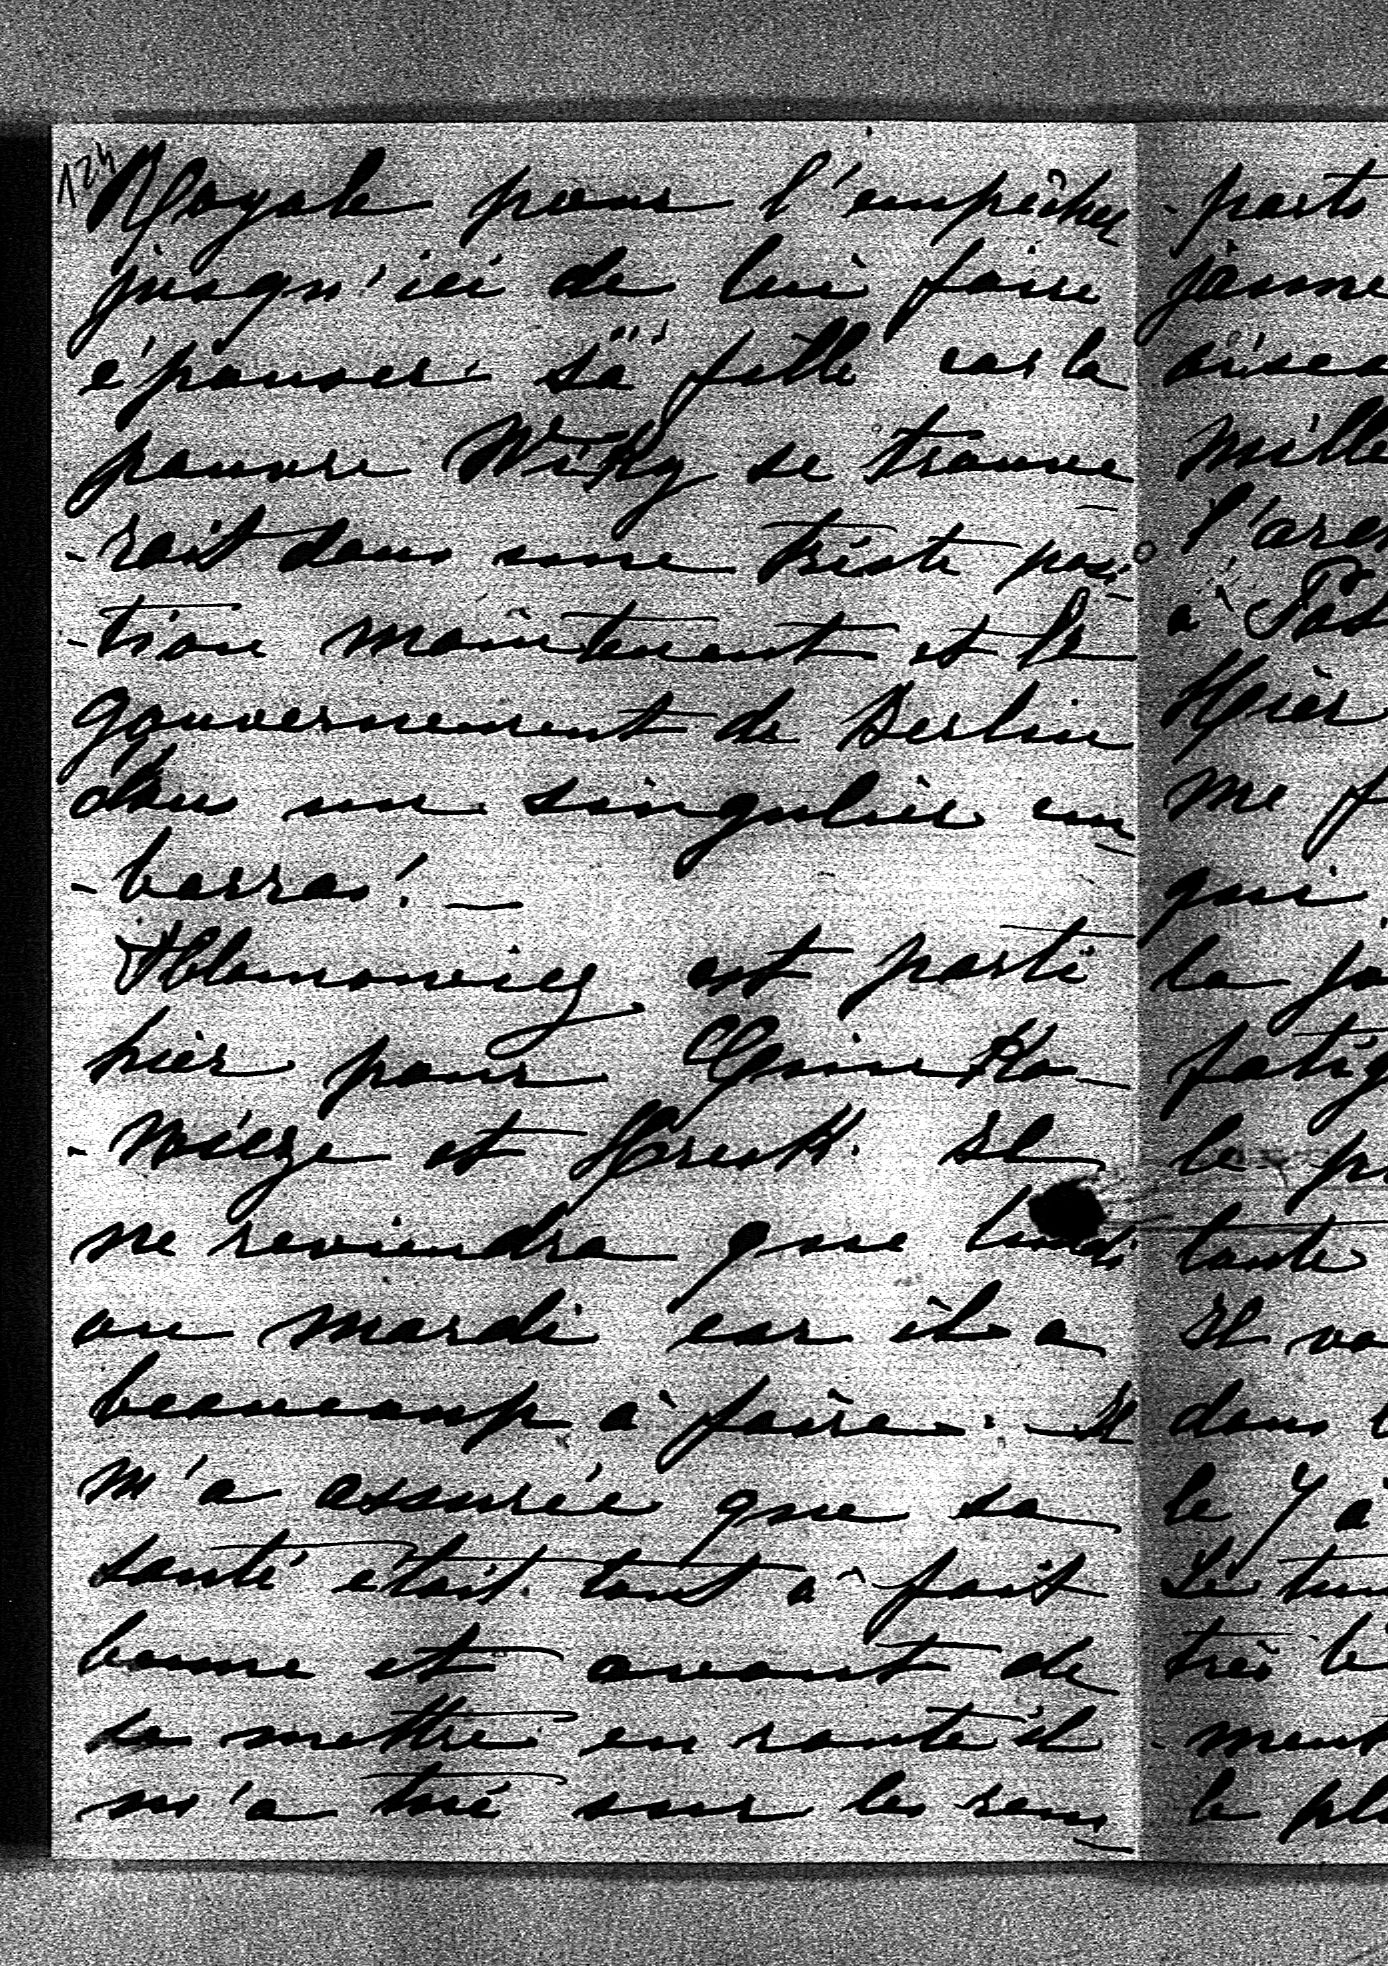 124
Royale pour l'empêcher
jusqu'ici de lui faire
épouser sa fille car la
pauvre Wiky se trouve
-rait dans une triste posi
-tion maintenant et le
gouvernement de Berlin
dans un singulier em
-barras! —
est parti
hier pour
et Il
ne reviendra que lundi
ou mardi car il a
beaucoup à faire. — Il
m'a assurée que sa
santé était tout à fait
bonne et avant de
se mettre en route il
m'a tué sur les rem
- parts
jaune
oisea
mille
l'are
à Pos
Hier
me f
qui
la jo
fatig
le p
toute
Il va
dans l
le 7 à
très b
- ment
le plu